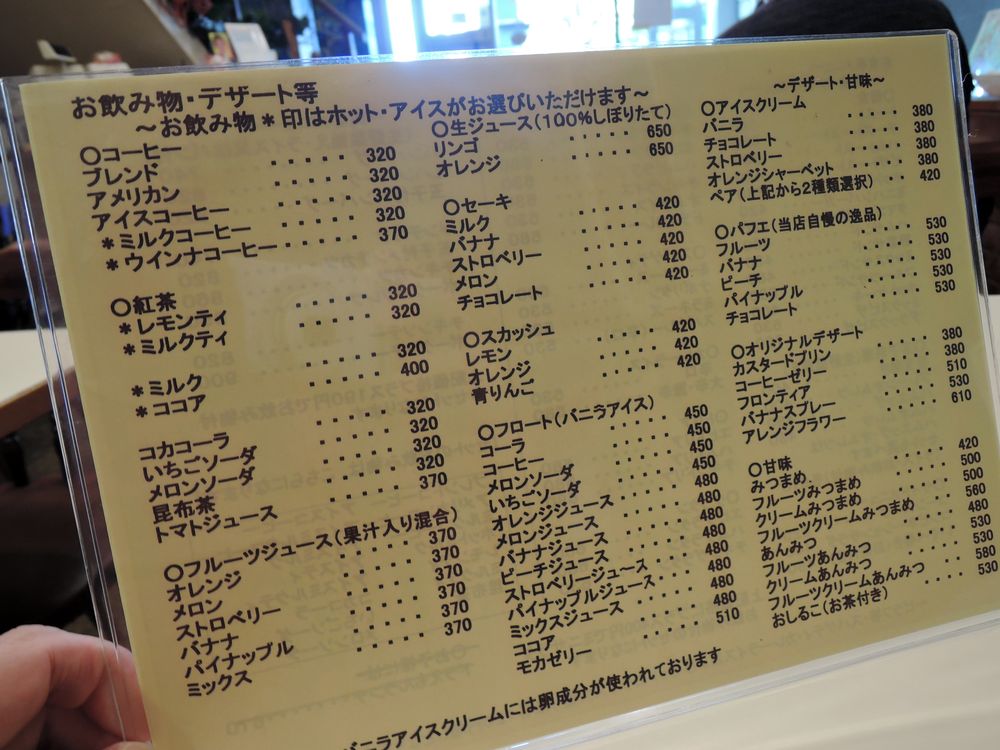 お飲み物・デザート等
～お飲み物*印はホット・アイスがお選びいただけます～
○コーヒー
ブレンド ・・・・・ 320
アメリカン ・・・・・ 320
アイスコーヒー ・・・・・ 320
*ミルクコーヒー ・・・・・ 320
*ウインナコーヒー ・・・・・ 370
○紅茶
*レモンティ ・・・・・ 320
*ミルクティ ・・・・・ 320
*ミルク ・・・・・ 320
*ココア ・・・・・ 400
コカコーラ ・・・・・ 320
いちごソーダ ・・・・・ 320
メロンソーダ ・・・・・ 320
昆布茶 ・・・・・ 320
トマトジュース ・・・・・ 370
○フルーツジュース(果汁入り混合)
オレンジ ・・・・・ 370
メロン ・・・・・ 370
ストロベリー ・・・・・ 370
バナナ ・・・・・ 370
パイナップル ・・・・・ 370
ミックス ・・・・・ 370
○生ジュース(100%しぼりたて)
リンゴ ・・・・・ 650
オレンジ ・・・・・ 650
○セーキ
ミルク ・・・・・ 420
バナナ ・・・・・ 420
ストロベリー ・・・・・ 420
メロン ・・・・・ 420
チョコレート ・・・・・ 420
○スカッシュ
レモン ・・・・・ 420
オレンジ ・・・・・ 420
青りんご ・・・・・ 420
○フロート(バニラアイス)
コーラ ・・・・・ 450
コーヒー ・・・・・ 450
メロンソーダ ・・・・・ 450
いちごソーダ ・・・・・ 450
オレンジジュース ・・・・・ 480
メロンジュース ・・・・・ 480
バナナジュース ・・・・・ 480
ピーチジュース ・・・・・ 480
ストロベリージュース ・・・・ 480
パイナップルジュース ・・・・ 480
ミックスジュース ・・・・・ 480
ココア ・・・・・ 480
モカゼリー ・・・・・ 510
～デザート・甘味～
○アイスクリーム
バニラ ・・・・・ 380
チョコレート ・・・・・ 380
ストロベリー ・・・・・ 380
オレンジシャーベット ・・・・・ 380
ペア(上記から2種類選択) ・・ 420
○パフエ(当店自慢の逸品)
フルーツ ・・・・・ 530
バナナ ・・・・・ 530
ピーチ ・・・・・ 530
パイナップル ・・・・・ 530
チョコレート ・・・・・ 530
○オリジナルデザート
カスタードプリン ・・・・・ 380
コーヒーゼリー ・・・・・ 380
フロンティア ・・・・・ 510
バナナスプレー ・・・・・ 530
アレンジフラワー ・・・・・ 610
○甘味
みつまめ ・・・・・ 420
フルーツみつまめ ・・・・・ 500
クリームみつまめ ・・・・・ 500
フルーツクリームみつまめ ・・・・ 560
あんみつ ・・・・・ 480
フルーツあんみつ ・・・・・ 530
クリームあんみつ ・・・・・ 530
フルーツクリームあんみつ ・・・・ 580
おしるこ(お茶付き) ・・・・ 530
バニラアイスクリームには卵成分が使われております